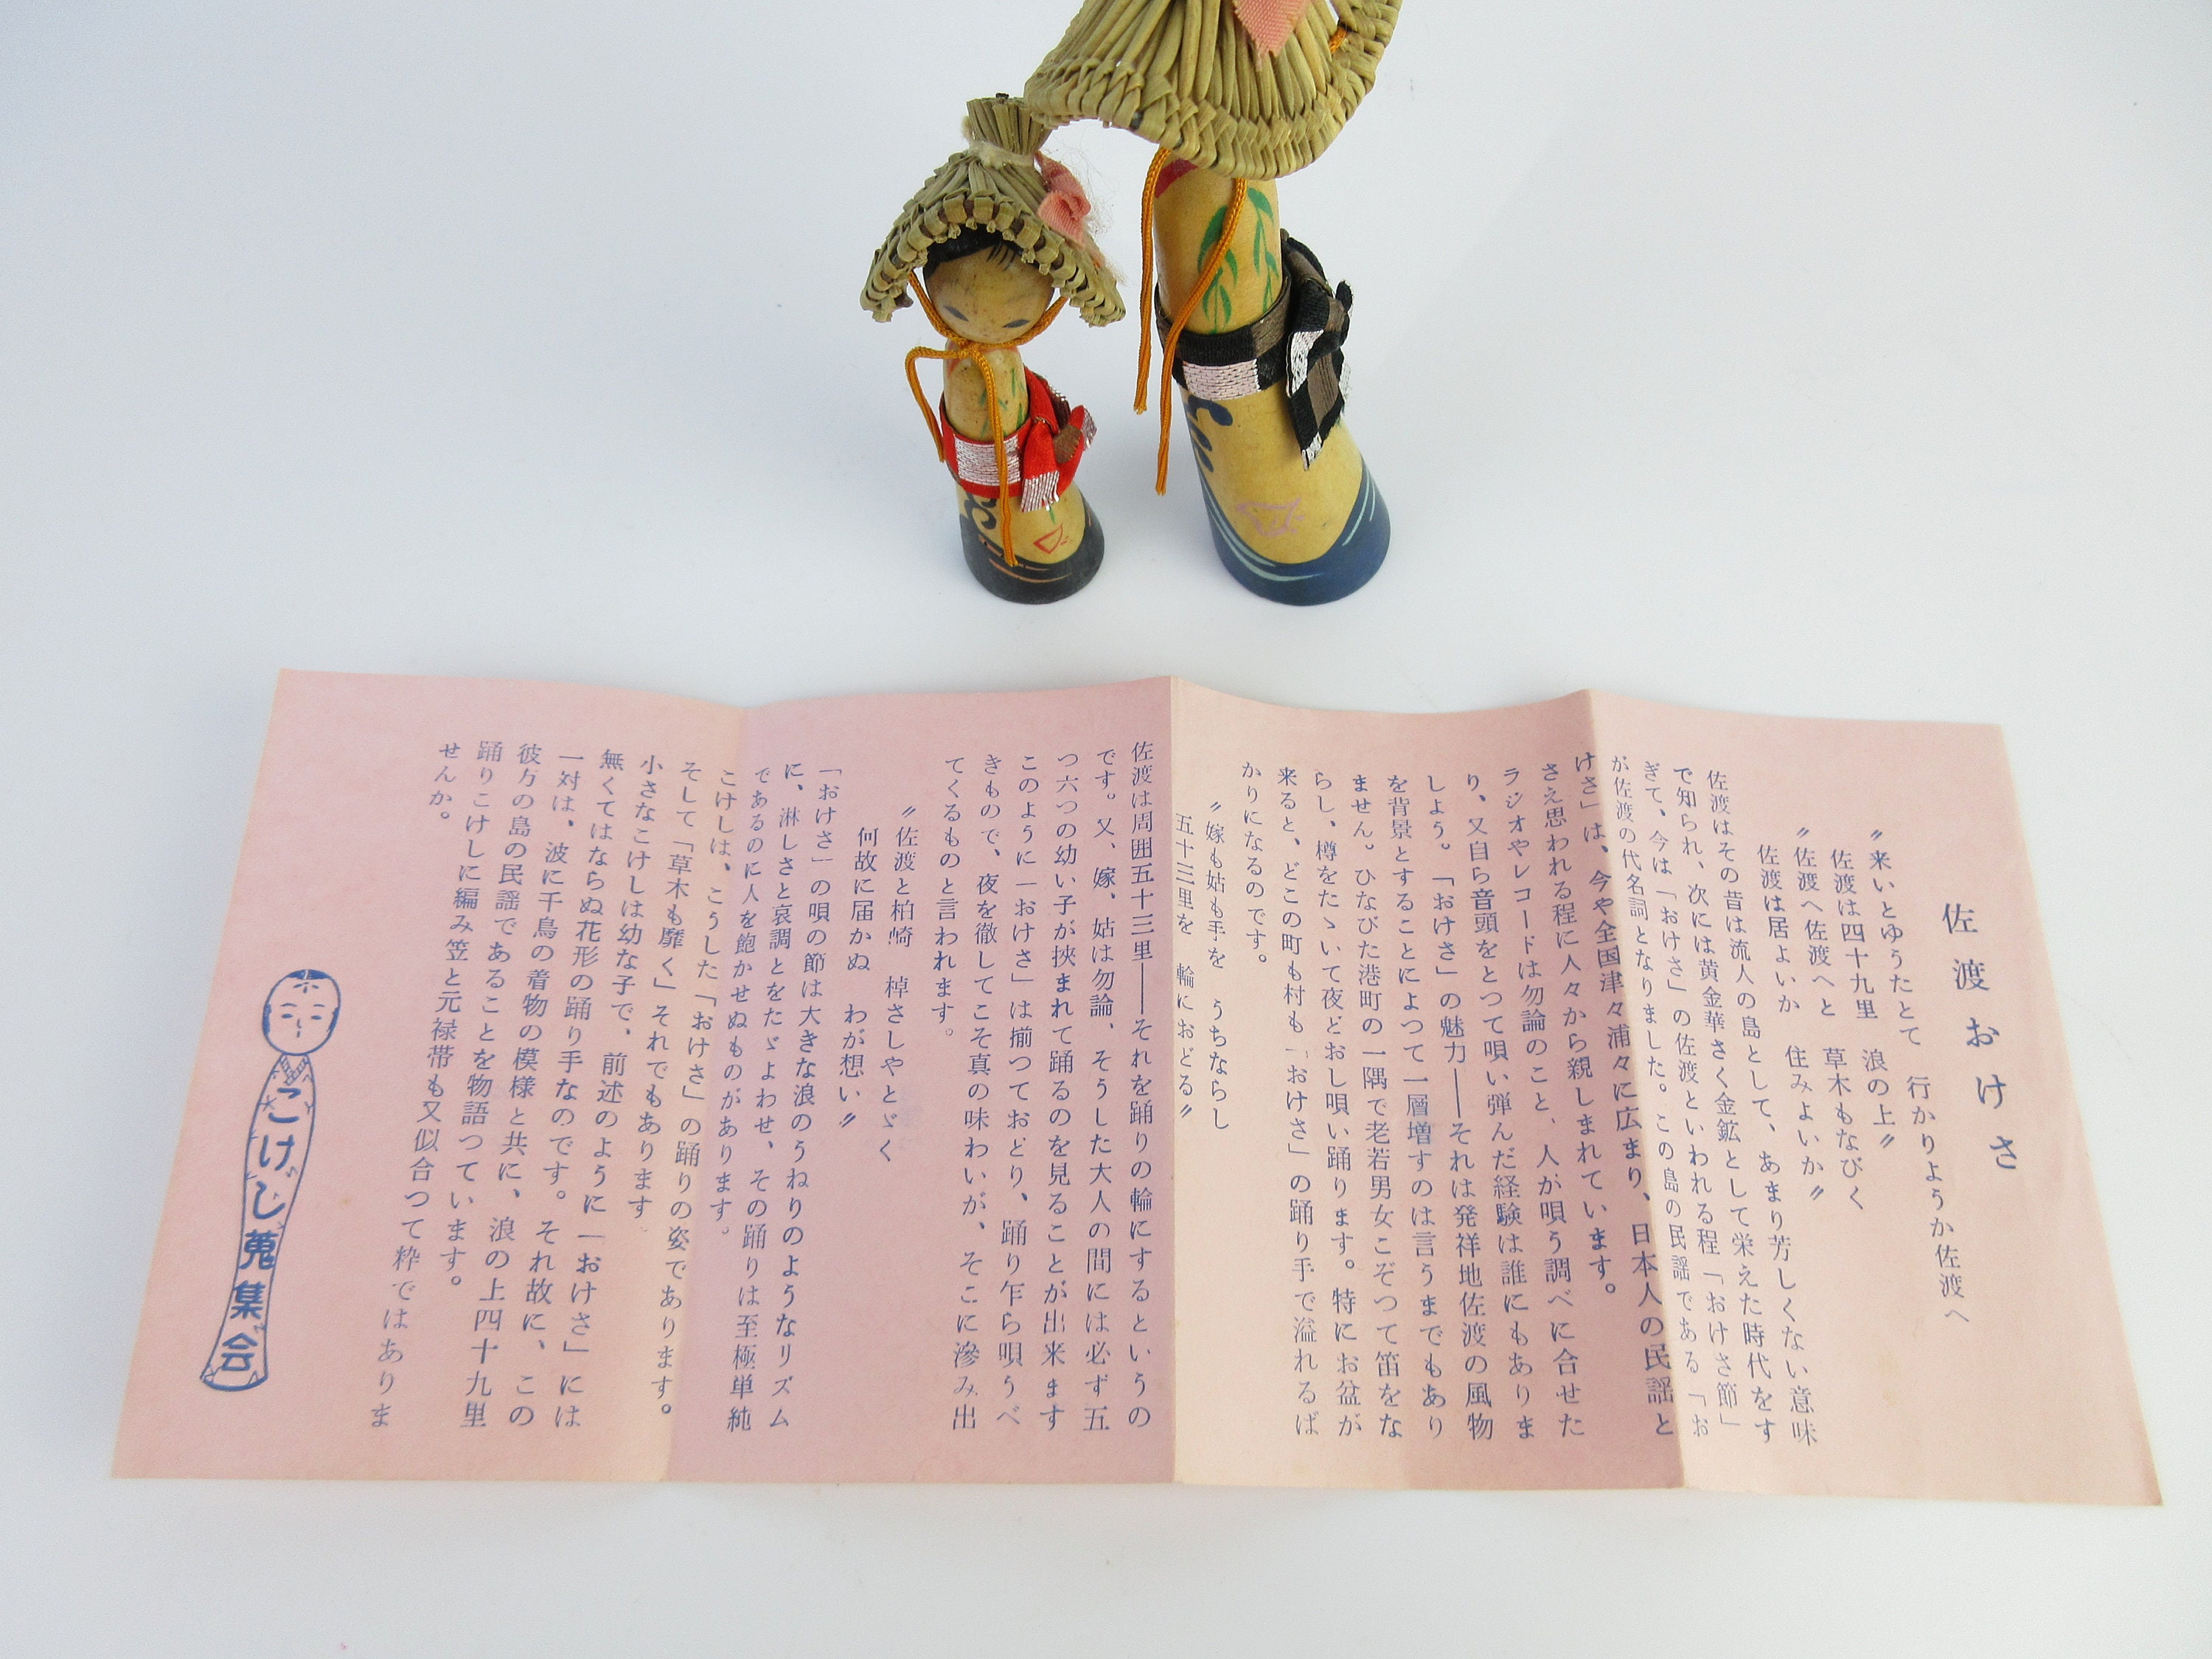 佐渡おけさ
〃来いとゆうたとて 行かりようか佐渡へ
佐渡は四十九里 浪の上〃
〃佐渡へ佐渡へと 草木もなびく
佐渡は居よいか 住みよいか〃
佐渡はその昔は流人の島として、あまり芳しくない意味
で知られ、次には黄金華さく金鉱として栄えた時代をす
ぎて、今は「おけさ」の佐渡といわれる程「おけさ節」
が佐渡の代名詞となりました。この島の民謡である「お
けさ」は、今や全国津々浦々に広まり、日本人の民謡と
さえ思われる程に人々から親しまれています。
ラジオやレコードは勿論のこと、人が唄う調べに合せた
り、又自ら音頭をとつて唄い弾んだ経験は誰にもありま
しよう。「おけさ」の魅力――それは発祥地佐渡の風物
を背景とすることによつて一層増すのは言うまでもあり
ません。ひなびた港町の一隅で老若男女こぞつて笛をな
らし、樽をたゝいて夜どおし唄い踊ります。特にお盆が
来ると、どこの町も村も「おけさ」の踊り手で溢れるば
かりになるのです。
〃嫁も姑も手を うちならし
五十三里を 輪におどる〃
佐渡は周囲五十三里――それを踊りの輪にするというの
です。又、嫁、姑は勿論、そうした大人の間には必ず五
つ六つの幼い子が挟まれて踊るのを見ることが出来ます
このように「おけさ」は揃つておどり、踊り乍ら唄うべ
きもので、夜を徹してこそ真の味わいが、そこに滲み出
てくるものと言われます。
〃佐渡と柏崎 棹さしやとゞく
何故に届かぬ わが想い〃
「おけさ」の唄の節は大きな浪のうねりのようなリズム
に、淋しさと哀調とをたゞよわせ、その踊りは至極単純
であるのに人を飽かせぬものがあります。
こけしは、こうした「おけさ」の踊りの姿であります。
そして「草木も靡く」それでもあります。
小さなこけしは幼な子で、前述のように「おけさ」には
無くてはならぬ花形の踊り手なのです。それ故に、この
一対は、波に千鳥の着物の模様と共に、浪の上四十九里
彼方の島の民謡であることを物語つています。
踊りこけしに編み笠と元禄帯も又似合つて粋ではありま
せんか。
こけし蒐集会